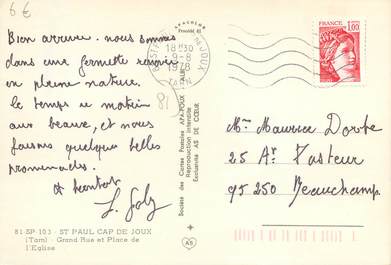 6€
Bien arrivés. nous sommes
dans une fermette rénovée
en pleine nature.
Le temps se maintien
au beau, et nous
faisons quelques belles
promenades.
A bientôt
81
81-SP-103 - ST PAUL CAP DE JOUX
(Tarn) - Grand Rue et Place de
l'Eglise
APA-POUX
Procédé
18H30
9-8
1978
TARN
Société des Cartes Postales APA-POUX - ALBI
Reproduction interdite
Exclusivité AS DE CŒUR
AS
FRANCE
1,00
Mme Maurice Dorbe
25 Av Pasteur
95250 Beauchamp